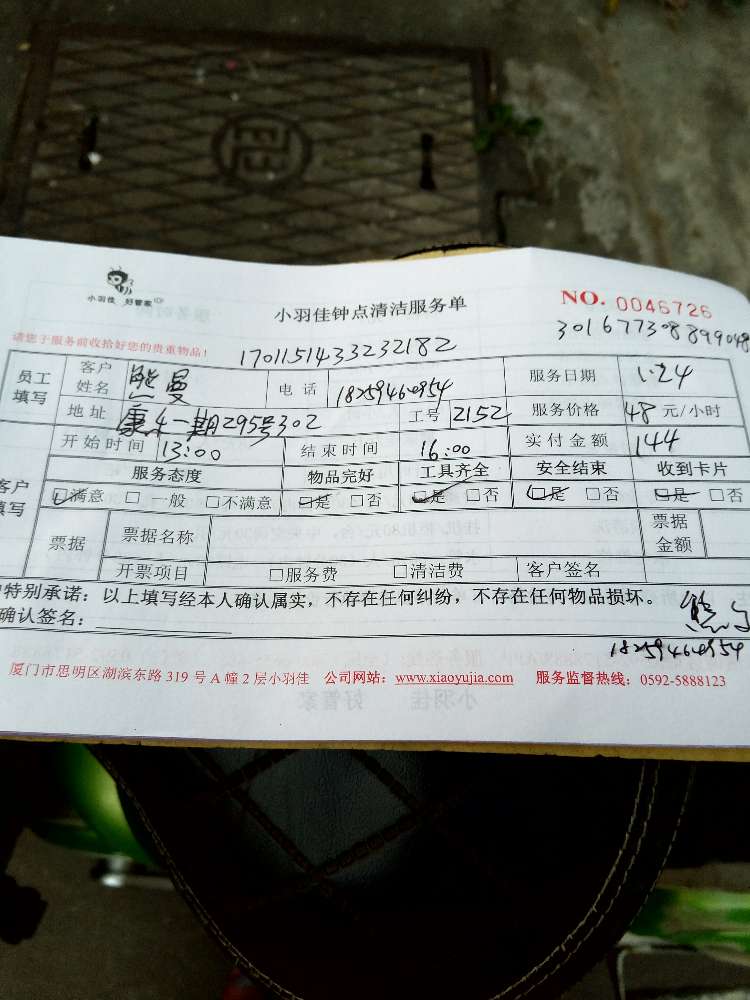 小羽佳 好管家
小羽佳钟点清洁服务单
NO. 0046726
请您于服务前收拾好您的贵重物品！
1701151433232182
301677308899048
员工填写 客户姓名 熊曼 电话 18259460954 服务日期 1.24
地址 一期295号302 工号 2152 服务价格 48 元/小时
开始时间 13:00 结束时间 16:00 实付金额 144
客户填写 服务态度 物品完好 工具齐全 安全结束 收到卡片
☑满意 □ 一般 □不满意 ☑是 □否 ☑是 □否 ☑是 □否 ☑是 □否
票据 票据名称 票据金额
开票项目 □服务费 □清洁费 客户签名
特别承诺：以上填写经本人确认属实，不存在任何纠纷，不存在任何物品损坏。
确认签名：
18259460954
厦门市思明区湖滨东路 319 号 A 幢 2 层小羽佳 公司网站：www.xiaoyujia.com 服务监督热线：0592-5888123